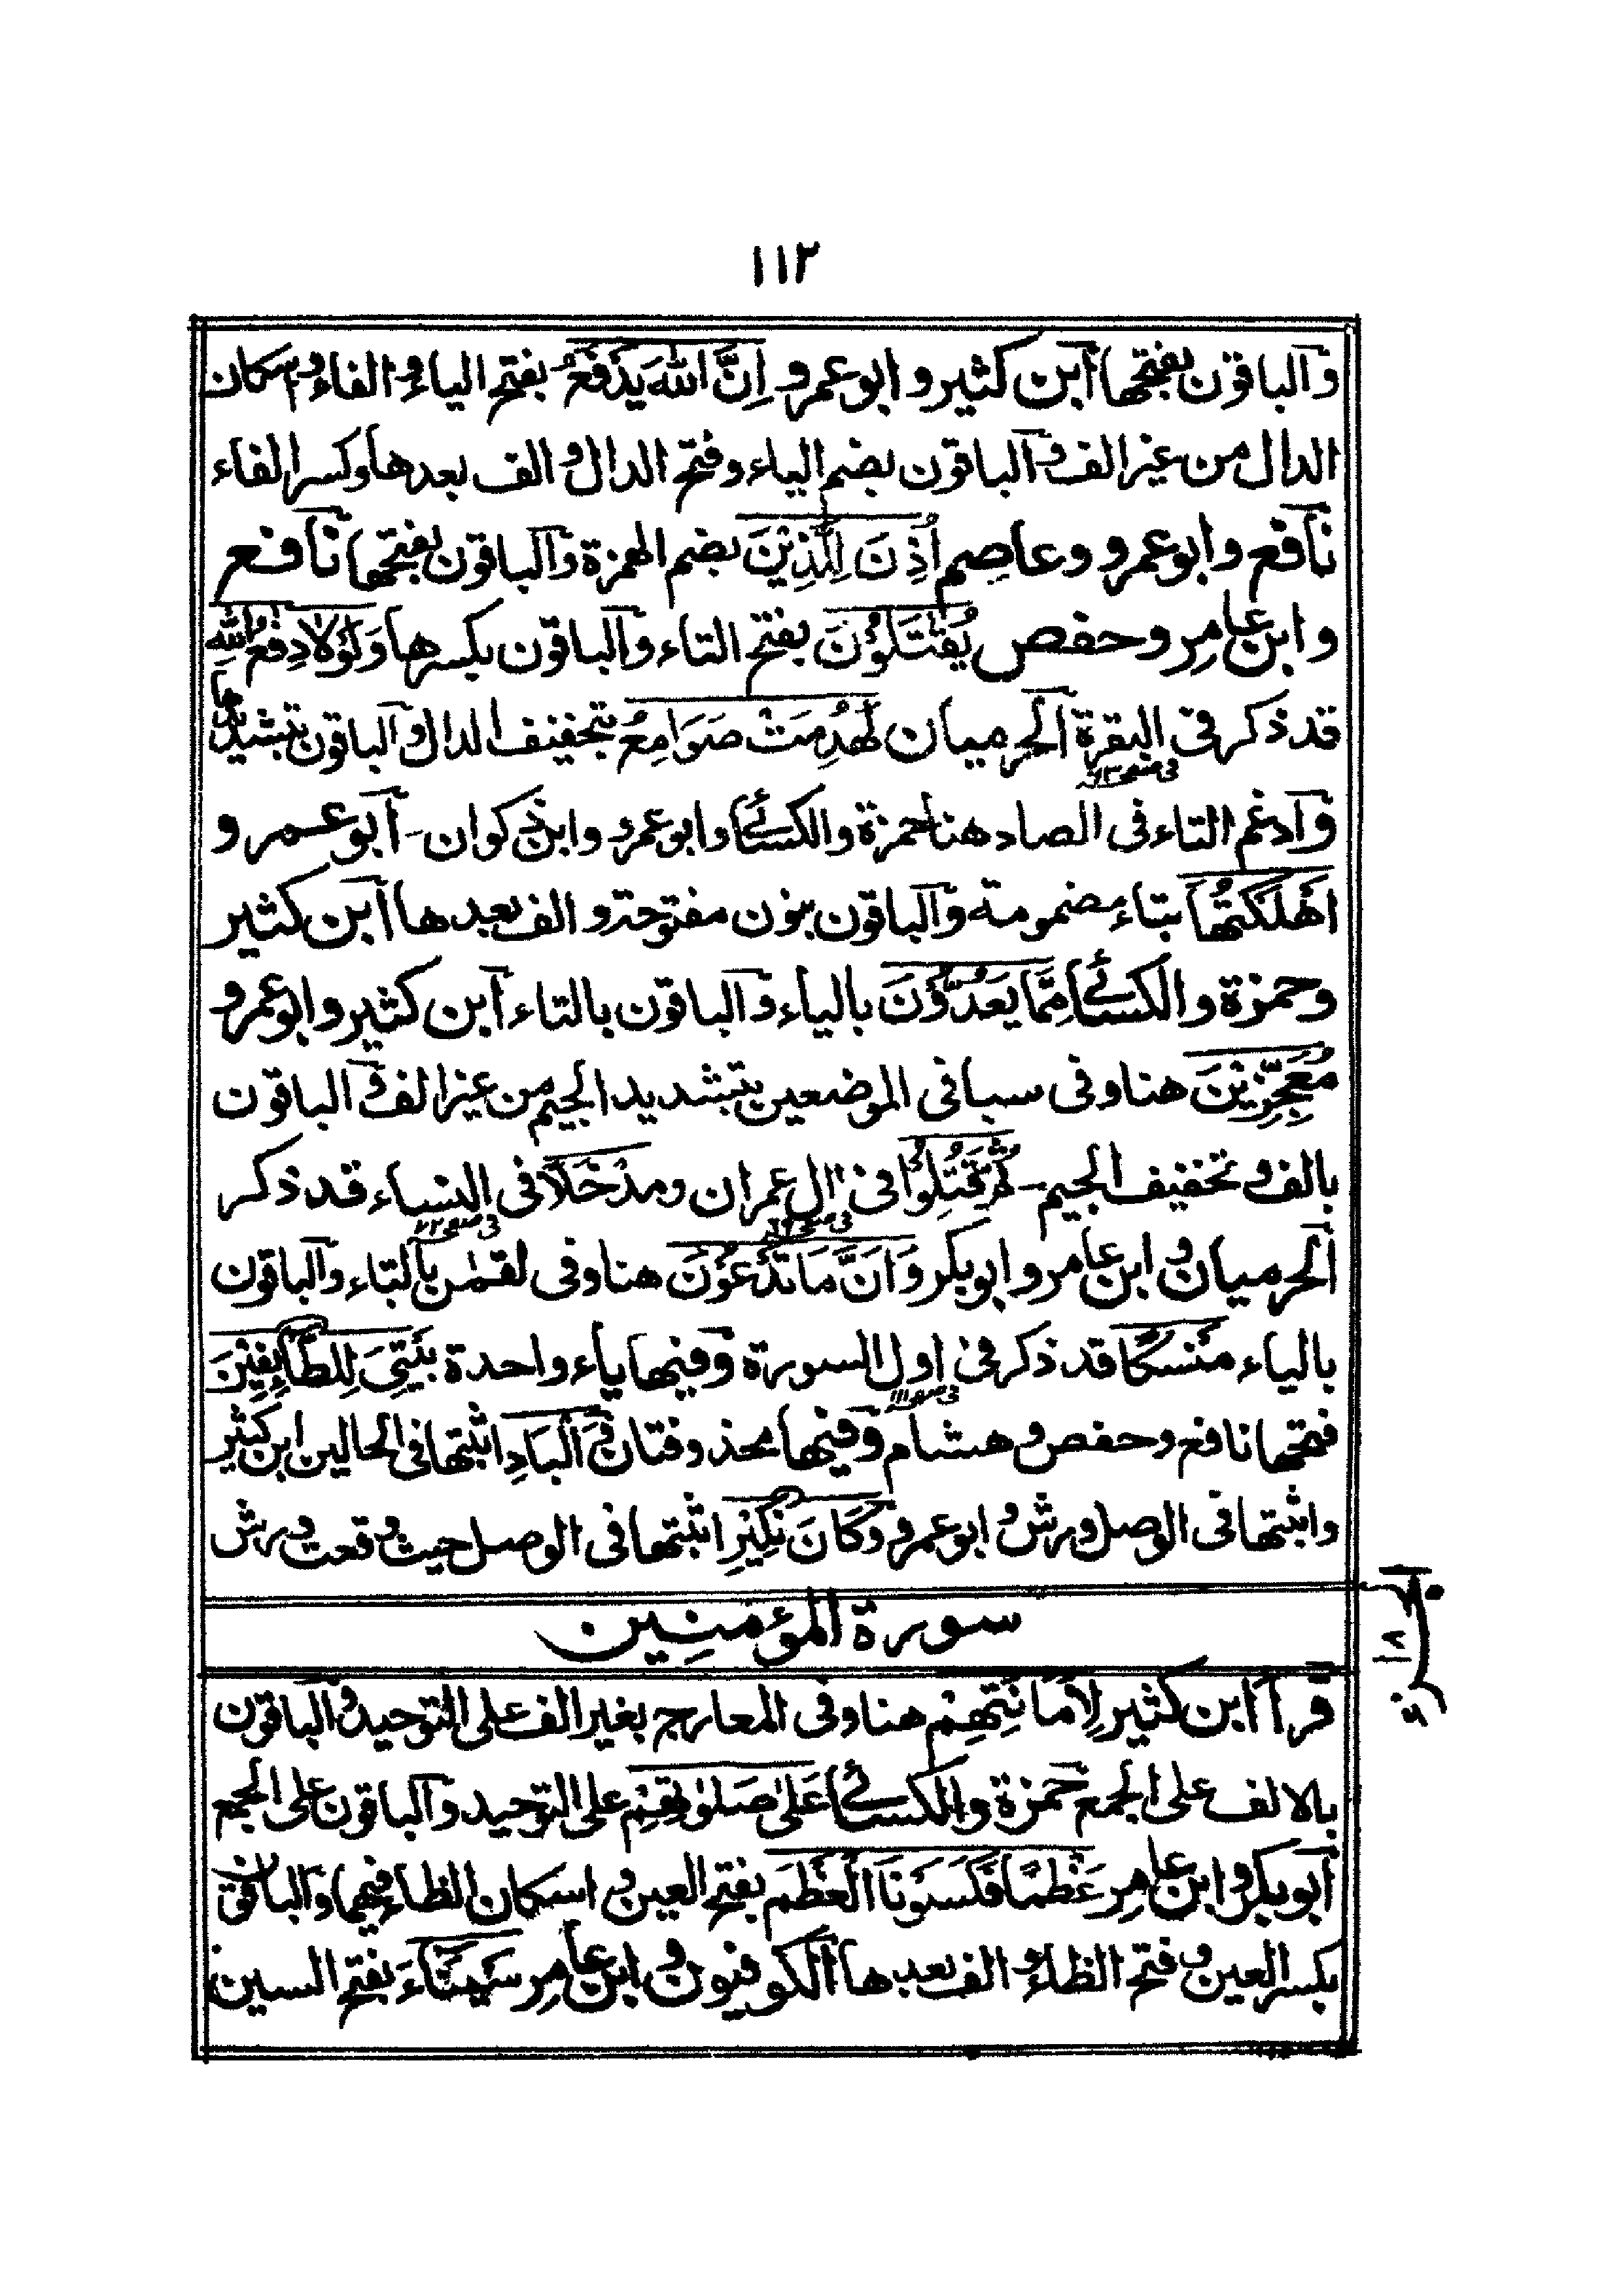 ١١٢
والباقون بفتحها ابن كثير و ابو عمرو اِنَّ اللّٰهَ يَدْفَعُ بفتح الياء و الفاء و اسكان
الدال من غير الف و الباقون بضم الياء و فتح الدال و الف بعدها و كسر الفاء
نافع و ابو عمرو و عاصم اُذِنَ لِلَّذِيْنَ بضم الهمزة و الباقون بفتحها نافع
و ابن عامر و حفص يُقٰتَلُوْنَ بفتح التاء و الباقون بكسرها وَ لَوْ لَا دِفٰعُ اللّٰهِ
قد ذكر فى البقرة الحرميان لَهُدِمَتْ صَوَامِعُ بتخفيف الدال و الباقون بتشديدها
فى صفحه ٦٣
و ادغم التاء فى الصاد هنا حمزة و الكسائى و ابو عمرو و ابن ذكوان - ابو عمرو
اَهْلَكْتُهَا بتاء مضمومة و الباقون بنون مفتوحة و الف بعدها ابن كثير
و حمزة و الكسائى مِمَّا يَعُدُّوْنَ بالياء و الباقون بالتاء ابن كثير و ابو عمرو
مُعَجِّزِيْنَ هنا و فى سبا فى الموضعين بتشديد الجيم من غير الف و الباقون
بالف و تخفيف الجيم - ثُمَّ قُتِلُوْا فى اٰل عمران و مَدْخَلًا فى النساء قد ذكر
فى صفحه ٧٢
الحرميان و ابن عامر و ابو بكر وَ اَنَّ مَا تَدْعُوْنَ هنا و فى لقمٰن بالتاء و الباقون
بالياء مَنْسَكًا قد ذكر فى اول السورة و فيها ياء واحدة بَيْتِىَ لِلطَّآئِفِيْنَ
فى صفحه ١١١
فتحها نافع و حفص و هشام و فيها محذوفتان وَ الْبَادِ اثبتها فى الحالين ابن كثير
و اثبتها فى الوصل ورش و ابو عمرو وَ كَانَ نَكِيْرِ اثبتها فى الوصل حيث وقعت ورش
سورة المؤمنين
قرأ ابن كثير لِاَمَانَتِهِمْ هنا و فى المعارج بغير الف على التوحيد و الباقون
بالالف على الجمع حمزة و الكسائى عَلٰى صَلٰوتِهِمْ على التوحيد و الباقون على الجمع
ابو بكر و ابن عامر عَظْمًا فَكَسَوْنَا الْعَظْمَ بفتح العين و اسكان الظاء فيهما و الباقون
بكسر العين و فتح الظاء و الف بعدها الكوفيون و ابن عامر سَيْنَآءَ بفتح السين